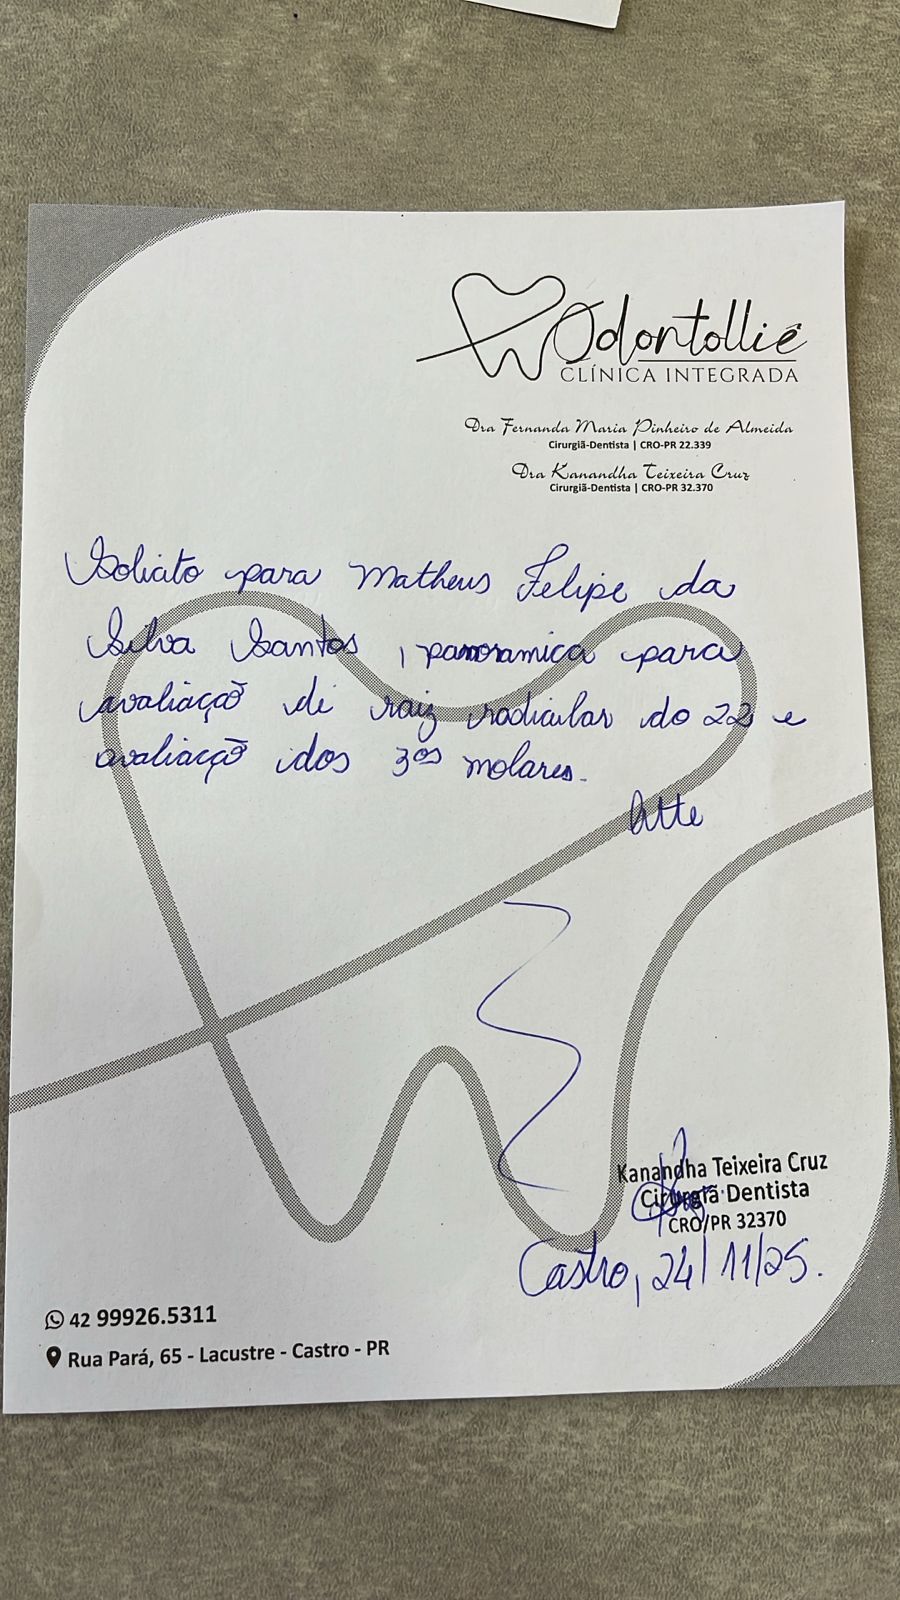 Odontolliê
CLÍNICA INTEGRADA
Dra Fernanda Maria Pinheiro de Almeida
Cirurgiã-Dentista | CRO-PR 22.339
Dra Kanandha Teixeira Cruz
Cirurgiã-Dentista | CRO-PR 32.370
Solicito para Matheus Felipe da
Silva Santos, panoramica para
avaliação de raiz radicular do 22 e
avaliação dos 3ºs molares.
Atte
Kanandha Teixeira Cruz
Cirurgiã Dentista
CRO/PR 32370
Castro, 24/11/25.
42 99926.5311
Rua Pará, 65 - Lacustre - Castro - PR